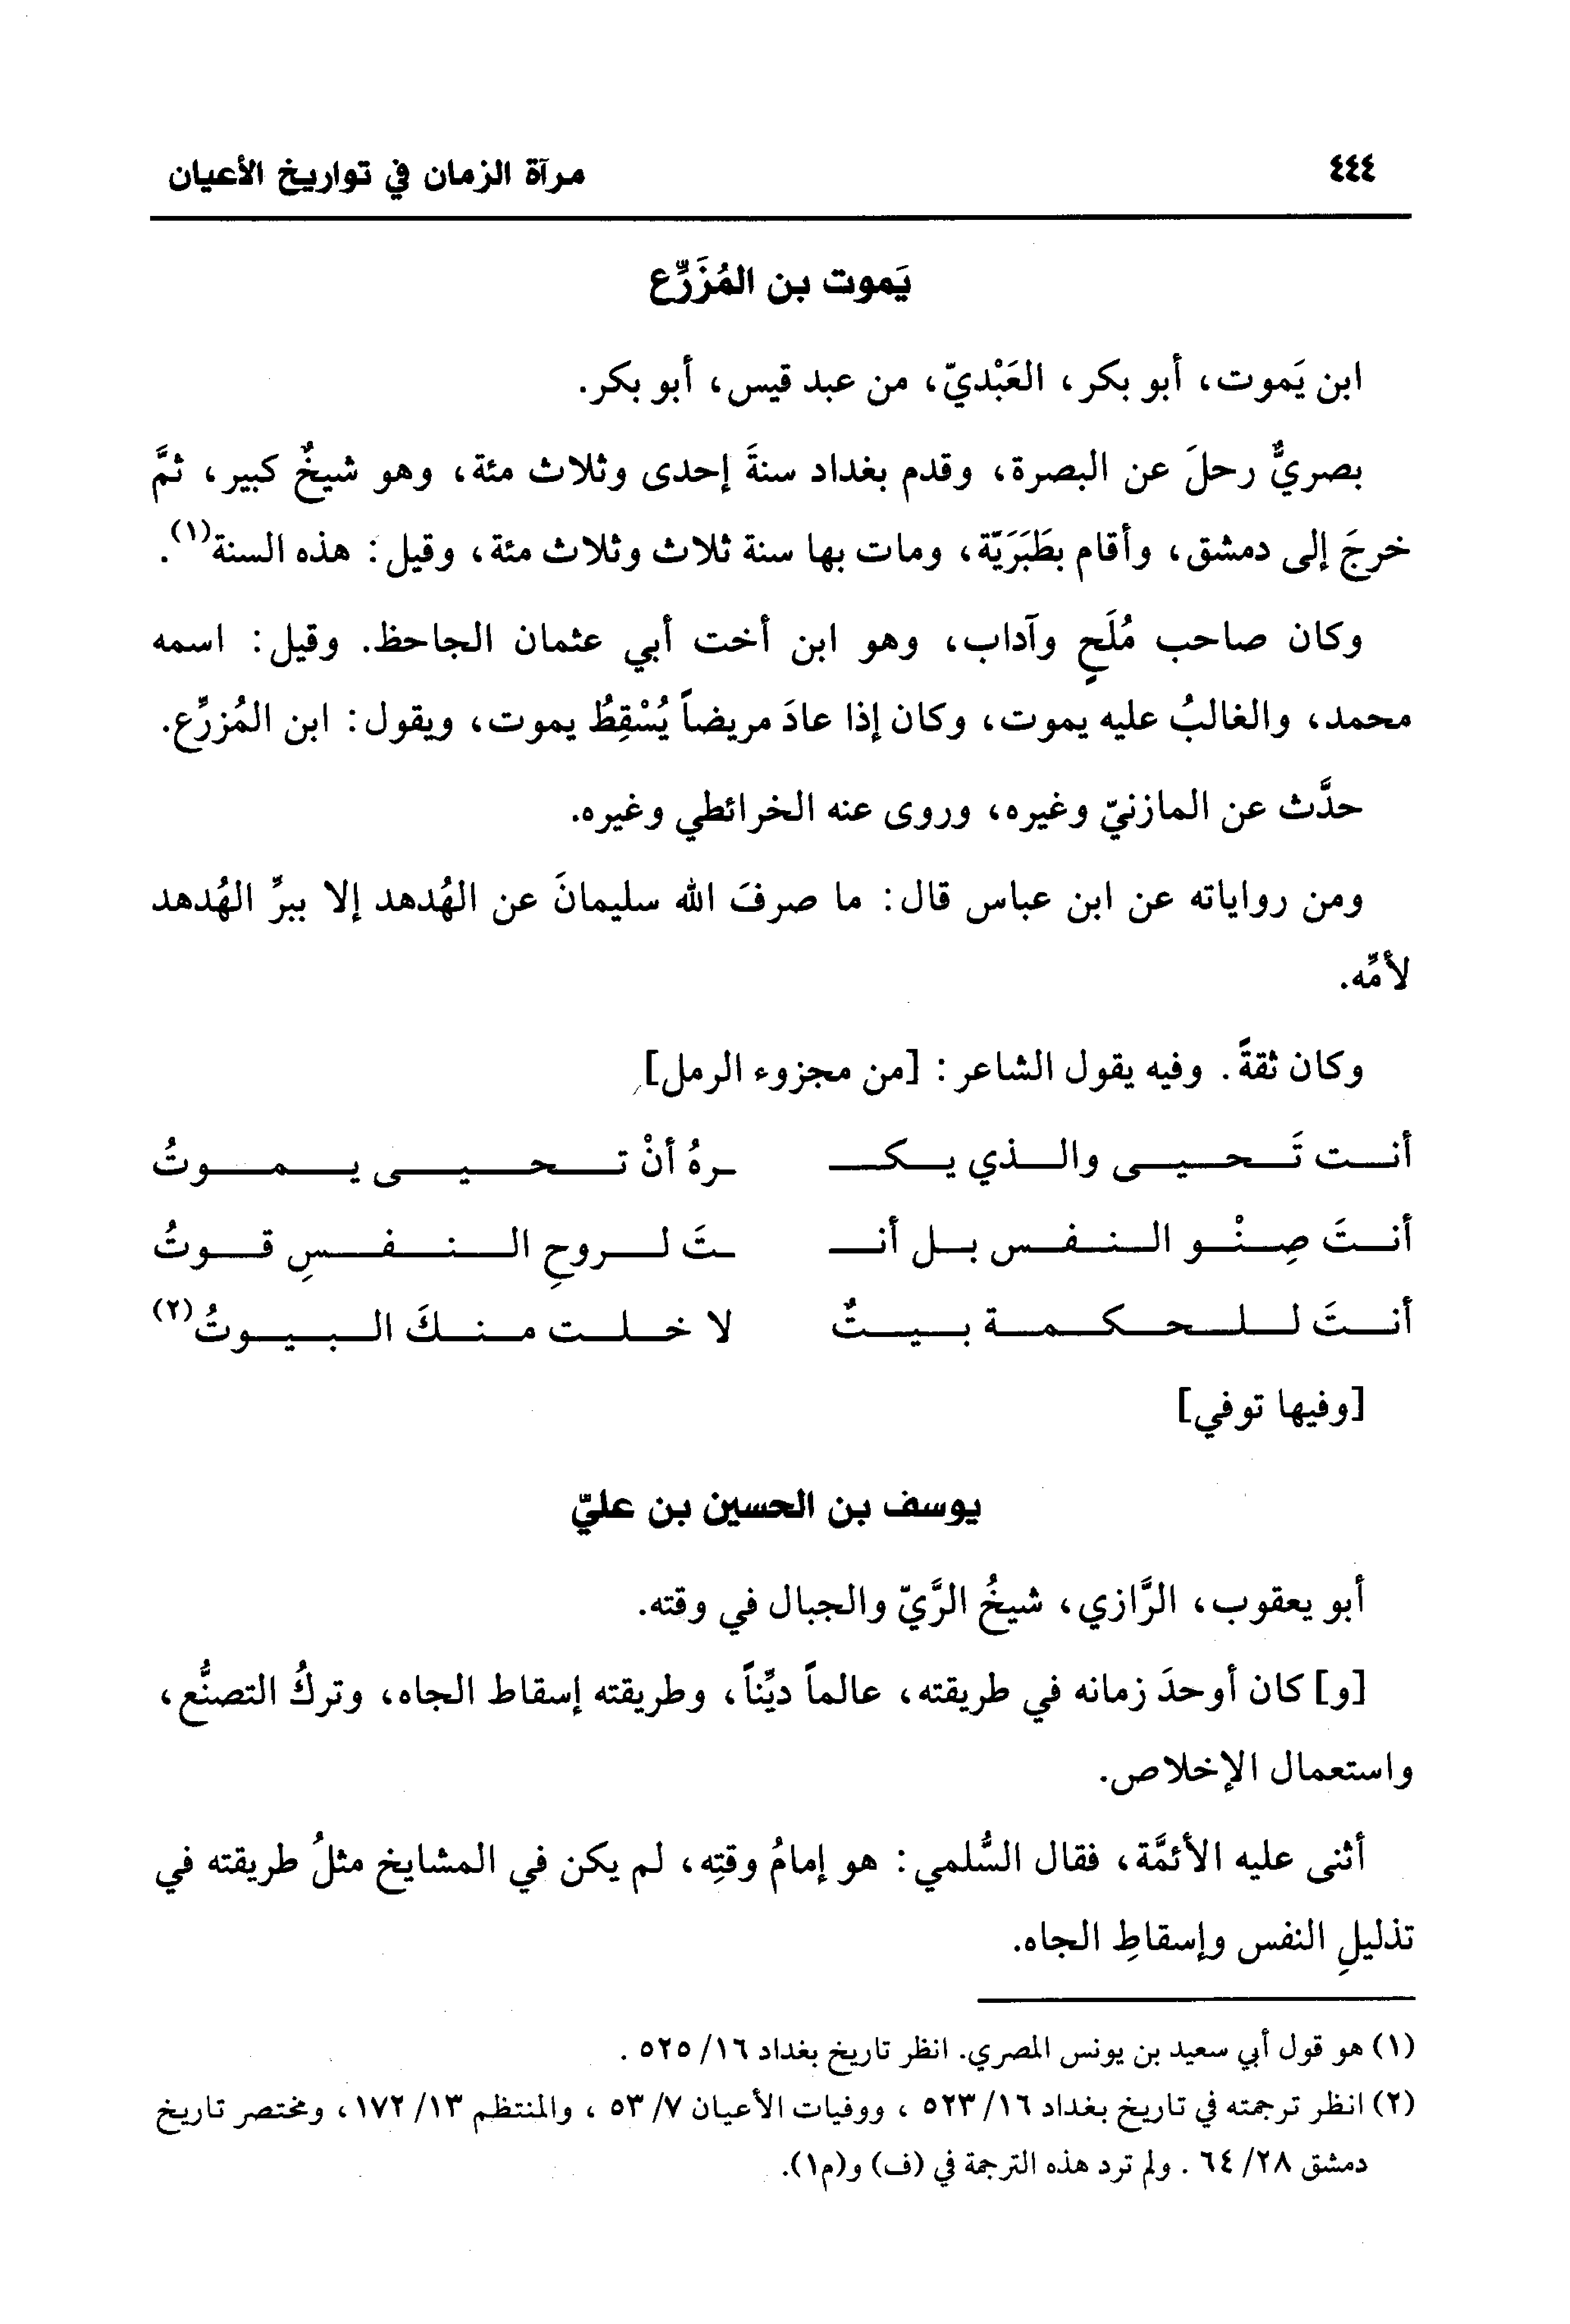 ٤٤٤ مرآة الزمان في تواريخ الأعيان
يَموت بن المُزَرِّع
ابن يَموت، أبو بكر، العَبْديّ، من عبد قيس، أبو بكر.
بصريٌّ رحلَ عن البصرة، وقدم بغداد سنةَ إحدى وثلاث مئة، وهو شيخٌ كبير، ثمَّ
خرجَ إلى دمشق، وأقام بطَبَرَيّة، ومات بها سنة ثلاث وثلاث مئة، وقيل: هذه السنة(١).
وكان صاحب مُلَحٍ وآداب، وهو ابن أخت أبي عثمان الجاحظ. وقيل: اسمه
محمد، والغالبُ عليه يموت، وكان إذا عادَ مريضاً يُسْقِطُ يموت، ويقول: ابن المُزرِّع.
حدَّث عن المازنيّ وغيره، وروى عنه الخرائطي وغيره.
ومن رواياته عن ابن عباس قال: ما صرفَ الله سليمانَ عن الهُدهد إلا ببرِّ الهُدهد
لأمِّه.
وكان ثقةً. وفيه يقول الشاعر: [من مجزوء الرمل]
أنـت تَـحـيـى والـذي يـكـ ـرهُ أنْ تـحـيـى يـمـوتُ
أنـتَ صِـنْـو الـنـفـس بـل أنـ ـتَ لـروحِ الـنـفـسِ قـوتُ
أنـتَ لـلـحـكـمـة بـيـتٌ لا خـلـت مـنـكَ الـبـيـوتُ(٢)
[وفيها توفي]
يوسف بن الحسين بن عليّ
أبو يعقوب، الرَّازي، شيخُ الرَّيّ والجبال في وقته.
[و] كان أوحدَ زمانه في طريقته، عالماً ديِّناً، وطريقته إسقاط الجاه، وتركُ التصنُّع،
واستعمال الإخلاص.
أثنى عليه الأئمَّة، فقال السُّلمي: هو إمامُ وقتِه، لم يكن في المشايخ مثلُ طريقته في
تذليلِ النفس وإسقاطِ الجاه.
(١) هو قول أبي سعيد بن يونس المصري. انظر تاريخ بغداد ١٦/ ٥٢٥ .
(٢) انظر ترجمته في تاريخ بغداد ١٦/ ٥٢٣ ، ووفيات الأعيان ٧/ ٥٣ ، والمنتظم ١٣/ ١٧٢، ومختصر تاريخ
دمشق ٢٨/ ٦٤ . ولم ترد هذه الترجمة في (ف) و(م١).